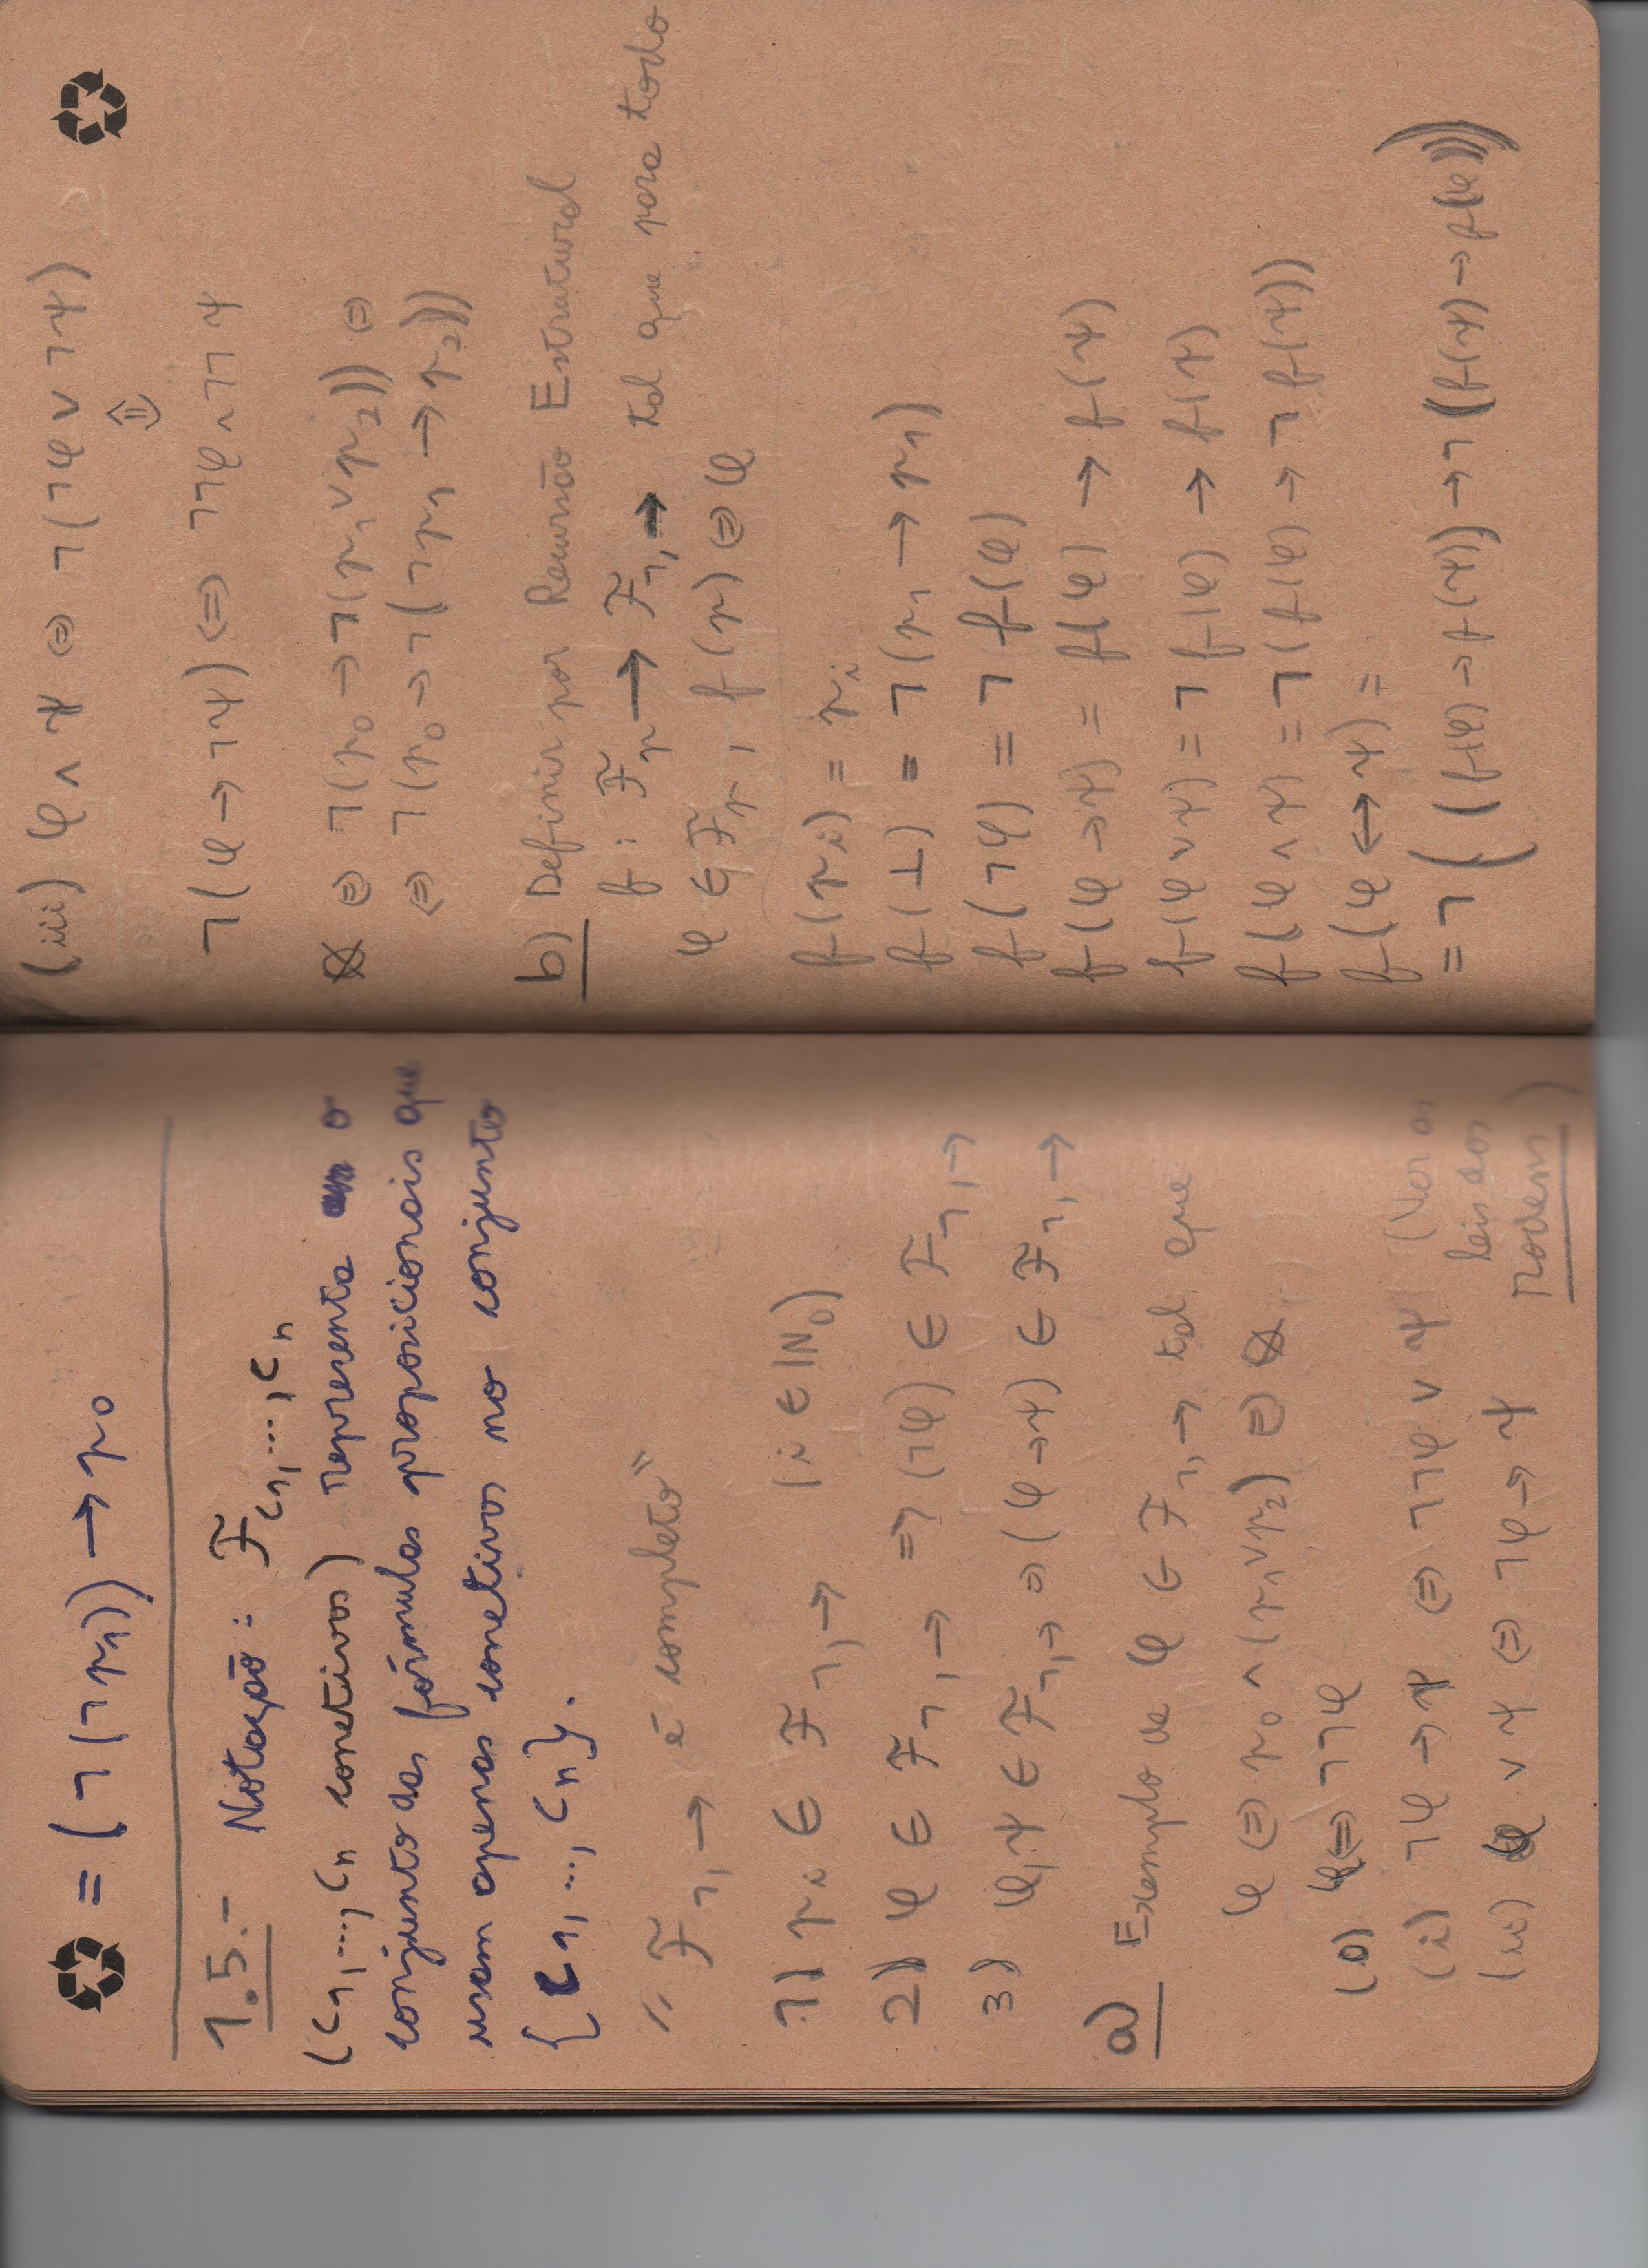 = (¬(¬p₁)) → p₀
1.5.- Notação: F_c₁,...,cₙ
(c₁,..., cₙ conetivos) representa o
conjunto das fórmulas proposicionais que
usam apenas conetivos no conjunto
{c₁,..., cₙ}.
"F_¬,→ é completo"
1) pᵢ ∈ F_¬,→ (i ∈ ℕ₀)
2) φ ∈ F_¬,→ => (¬φ) ∈ F_¬,→
3) φ,ψ ∈ F_¬,→ ⇒ (φ→ψ) ∈ F_¬,→
a) Exemplo de φ ∈ F_¬,→ tal que
φ ⇔ p₀ ∧ (p₁∨p₂) ⇔
(0) φ ⇔ ¬¬φ
(i) ¬φ → ψ ⇔ ¬¬φ ∨ ψ (Ver as
leis dos
(ii) φ ∨ ψ ⇔ ¬φ → ψ
(iii) φ ∧ ψ ⇔ ¬(¬φ ∨ ¬ψ)
⇕
¬(φ → ¬ψ) ⇔ ¬¬φ ∧ ¬¬ψ
⇔ ¬(p₀ → ¬(p₁ ∨ p₂)) ⇔
⇔ ¬(p₀ → ¬(¬p₁ → p₂))
b) Definir por Recursão Estrutural
f : F_p → F_¬,→ tal que para todo
φ ∈ F_p, f(p) ⇔ φ
f(pᵢ) = pᵢ
f(⊥) = ¬(p₁ → p₁)
f(¬φ) = ¬ f(φ)
f(φ → ψ) = f(φ) → f(ψ)
f(φ ∨ ψ) = ¬ f(φ) → f(ψ)
f(φ ∧ ψ) = ¬(f(φ) → ¬ f(ψ))
f(φ ↔ ψ) =
= ¬((f(φ) → f(ψ)) → ¬(f(ψ) → f(φ)))